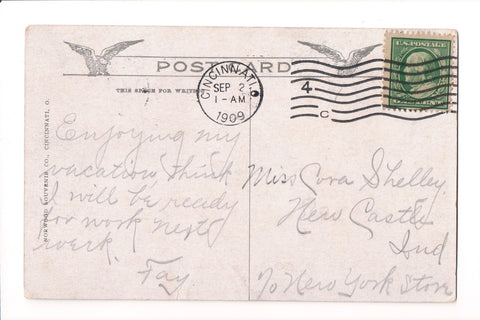 POST CARD
THIS SPACE FOR WRITING
CINCINNATI, O.
SEP 2
1-AM
1909
4
C
U.S. POSTAGE
NORWOOD SOUVENIR CO., CINCINNATI, O.
Enjoying my
vacation think
I will be ready
for work next
week.
Fay.
Miss Cora Shelley
New Castle
Ind
c/o New York Store